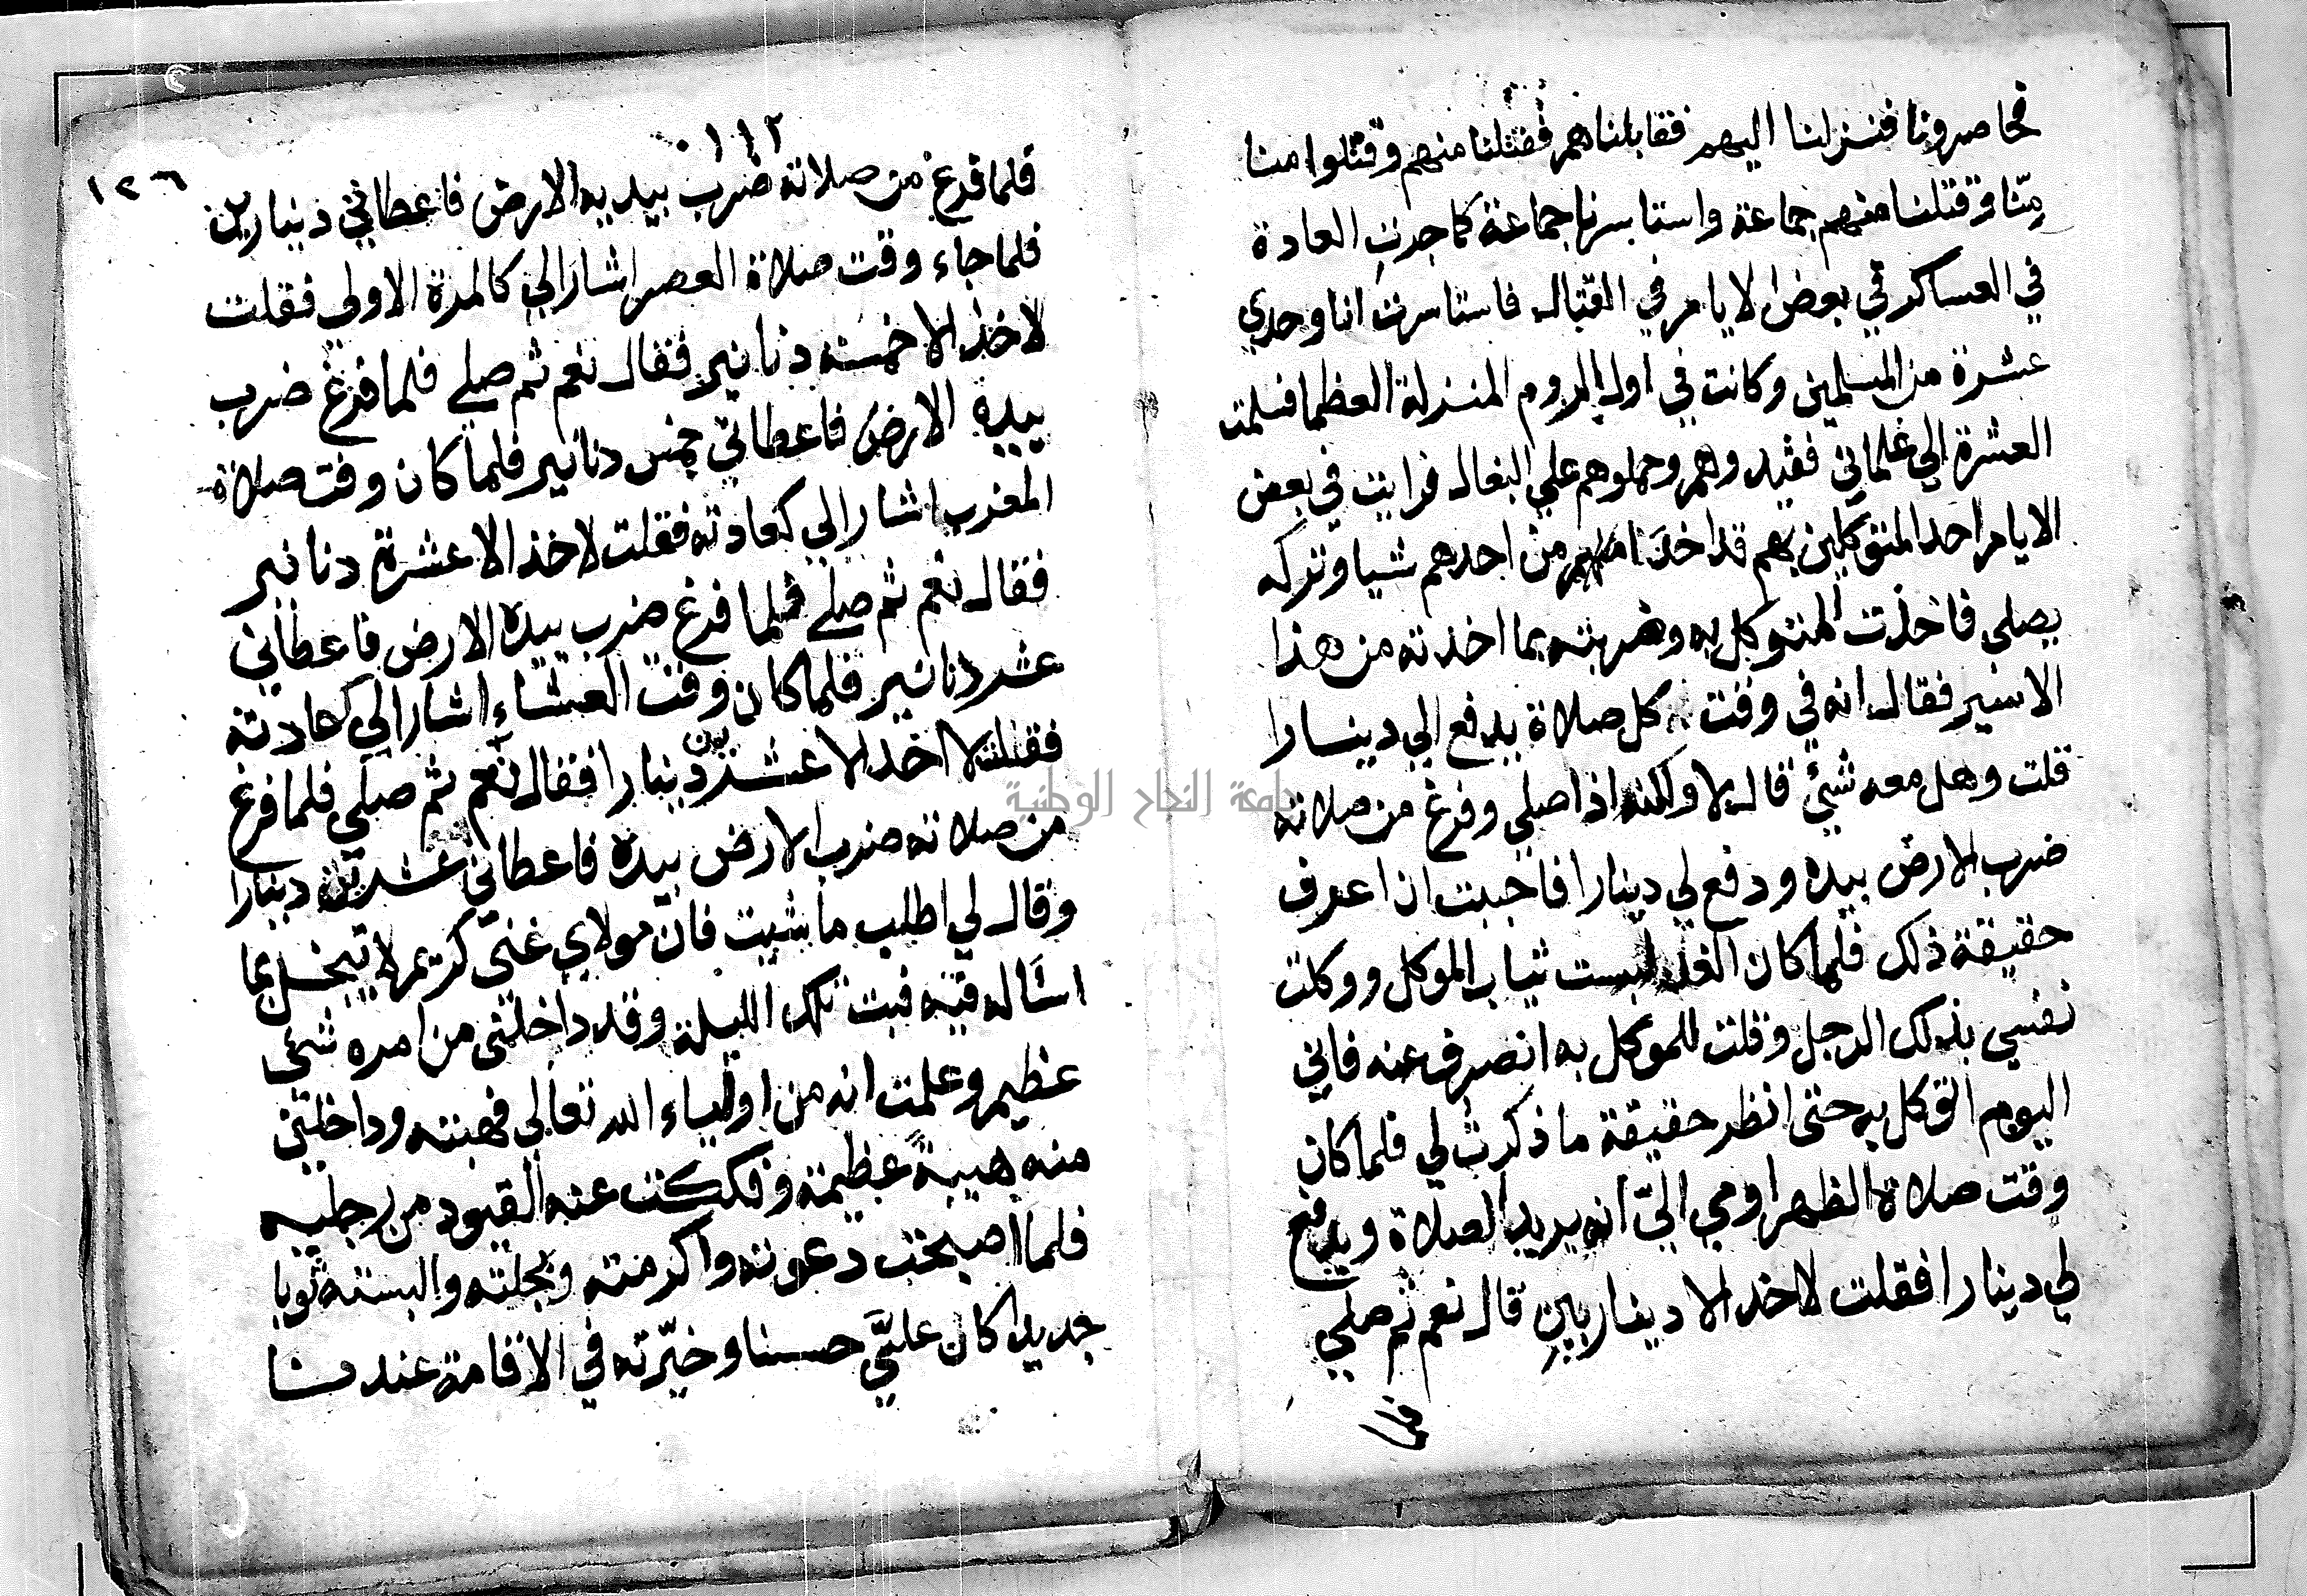 فحاصرونا فنزلنا اليهم فقابلناهم فقتلنا منهم وقتلوا منا
مِنّا وقتلنا منهم جماعة واستاسرنا جماعة كما جرت العادة
في العساكر في بعض الايام في القتال فاستاسرت انا وحدي
عشرة من المسلمين وكانت في اول الروم المنزلة العظما فسلمت
العشرة الي غلماني فقيدوهم وحملوهم علي البغال فرايت في بعض
الايام احد المتوكلين بهم قد اخذ من احدهم شيا وتركه
يصلي فاخذت المتوكل به وضربته بما اخذته من هذا
الاسير فقال انه في وقت كل صلاة يدفع الي دينارا
قلت وهل معه شئ قال لا ولكنه اذا صلي وفرغ من صلاته
ضرب الارض بيده ودفع لي دينارا فاحببت ان اعرف
حقيقة ذلك فلما كان الغد لبست ثياب الموكل ووكلت
نفسي بذلك الرجل وقلت للموكل به انصرف عنه فاني
اليوم اتوكل به حتى انظر حقيقة ما ذكرت لي فلما كان
وقت صلاة الظهر اومي اليّ انه يريد الصلاة ويدفع
لي دينارا فقلت لاخذ الا دينارين قال نعم ثم صلي
فلما
١١٢
١٢٦
فلما فرغ من صلاته ضرب بيديه الارض فاعطاني دينارين
فلما جاء وقت صلاة العصر اشار الي كالمرة الاولي فقلت
لاخذ الا خمسه دنانير فقال نعم ثم صلي فلما فرغ ضرب
بيده الارض فاعطاني خمس دنانير فلما كان وقت صلاة
المغرب اشار الي كعادته فقلت لاخذ الا عشرة دنانير
فقال نعم ثم صلي فلما فرغ ضرب بيده الارض فاعطاني
عشر دنانير فلما كان وقت العشاء اشار الي كعادته
فقلت لا اخذ الا عشرين دينارا فقال نعم ثم صلي فلما فرغ
من صلاته ضرب الارض بيده فاعطاني عشرين دينارا
وقال لي اطلب ما شيت فان مولاي غني كريم لا يبخل بما
اساله فيه فبت تلك الليلة وقد داخلني من امره شئ
عظيم وعلمت انه من اولياء الله تعالي فهبته وداخلتني
منه هيبةً عظيمة وفككت عنه القيود من رجليه
فلما اصبحت دعوته واكرمته وبجلته والبسته ثوبا
جديدا كان عليَّ حسنا وخيّرته في الاقامة عندنا
جامعة النجاح الوطنية